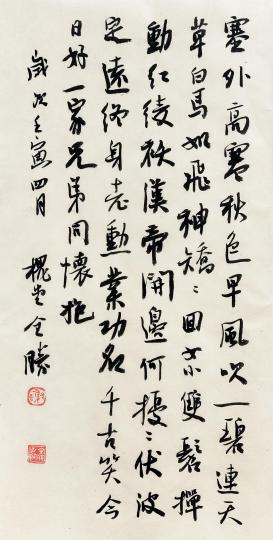 塞外高寒秋色早風吹一碧連天
草白馬如飛神矯〻回雙鬟撣
動紅綾袄漢帝開邊何擾〻伏波
定遠終身老勳業功名千古笑今
日好一家兄弟同懷抱
歲次壬寅四月 堂全勝